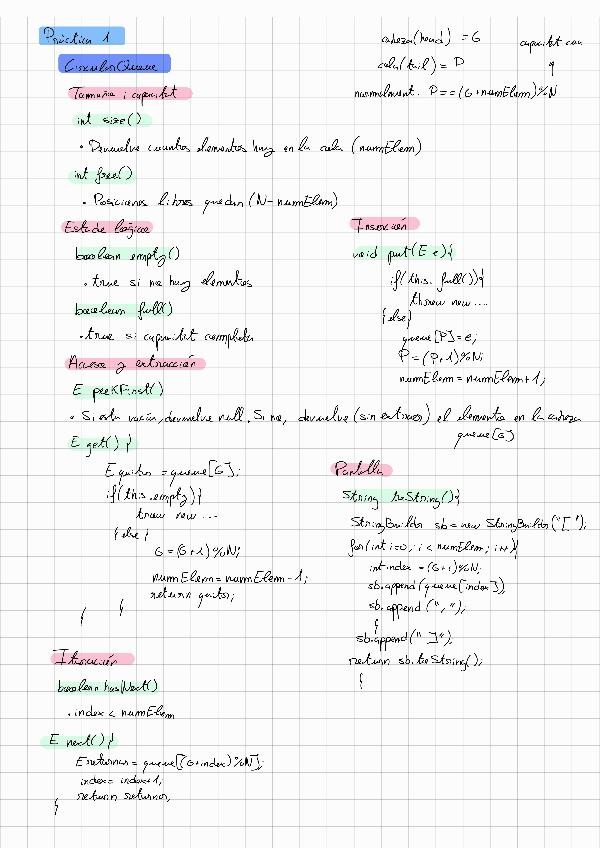 Práctica 1
CircularQueue
cabeza(head) = G
cola(tail) = P
normalment. P == (G+numElem)%N
capacitat con
Tamaño i capacitat
int size()
• Devuelve cuantos elementos hay en la cola (numElem)
int free()
• Posiciones libres quedan (N-numElem)
Estado lógico
boolean empty()
• true si no hay elementos
boolean full()
• true si capacitat completa
Acceso y extracción
E peekFirst()
• Si esta vacía, devuelve null. Si no, devuelve (sin extraer) el elemento en la cabeza
queue[G]
E get() {
E quitar = queue[G];
if(this.empty){
throw new ...
} else {
G = (G+1)%N;
numElem = numElem-1;
return quitar;
}
}
Inserción
void put(E e){
if(this.full()){
throw new ....
}else{
queue[P]=e;
P=(P+1)%N;
numElem = numElem+1;
Pantalla
String toString(){
StringBuilder sb = new StringBuilder("[");
for(int i=0; i < numElem; i++){
int index = (G+i)%N;
sb.append(queue[index])
sb.append(",");
}
sb.append("]")
return sb.toString();
}
Iteración
boolean hasNext()
• index < numElem
E next() {
E retornar = queue[(G+index)%N];
index = index+1;
return retornar;
}